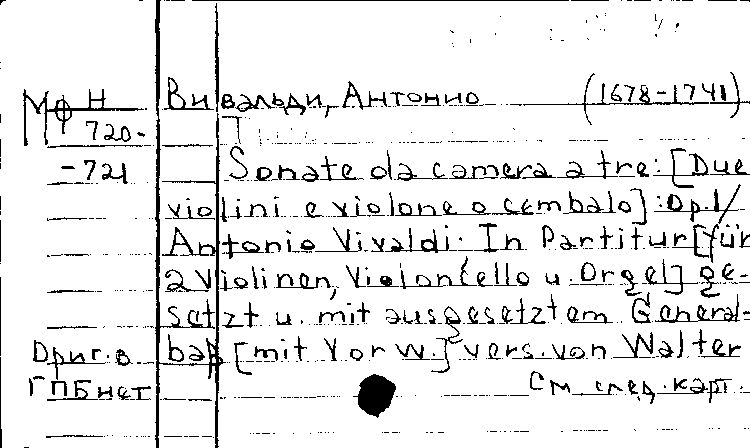 Мф Н Вивальди, Антонио (1678-1741)
720-
-721 Sonate da camera a tre: [Due
violini e violone o cembalo]: Op.1/
Antonio Vivaldi. In Partitur [für
2 Violinen, Violoncello u. Orgel] ge-
setzt u. mit ausgesetztem General-
Ориг. в baß [mit Vorw.] vers. von Walter
ГПБ нет См. след. карт.